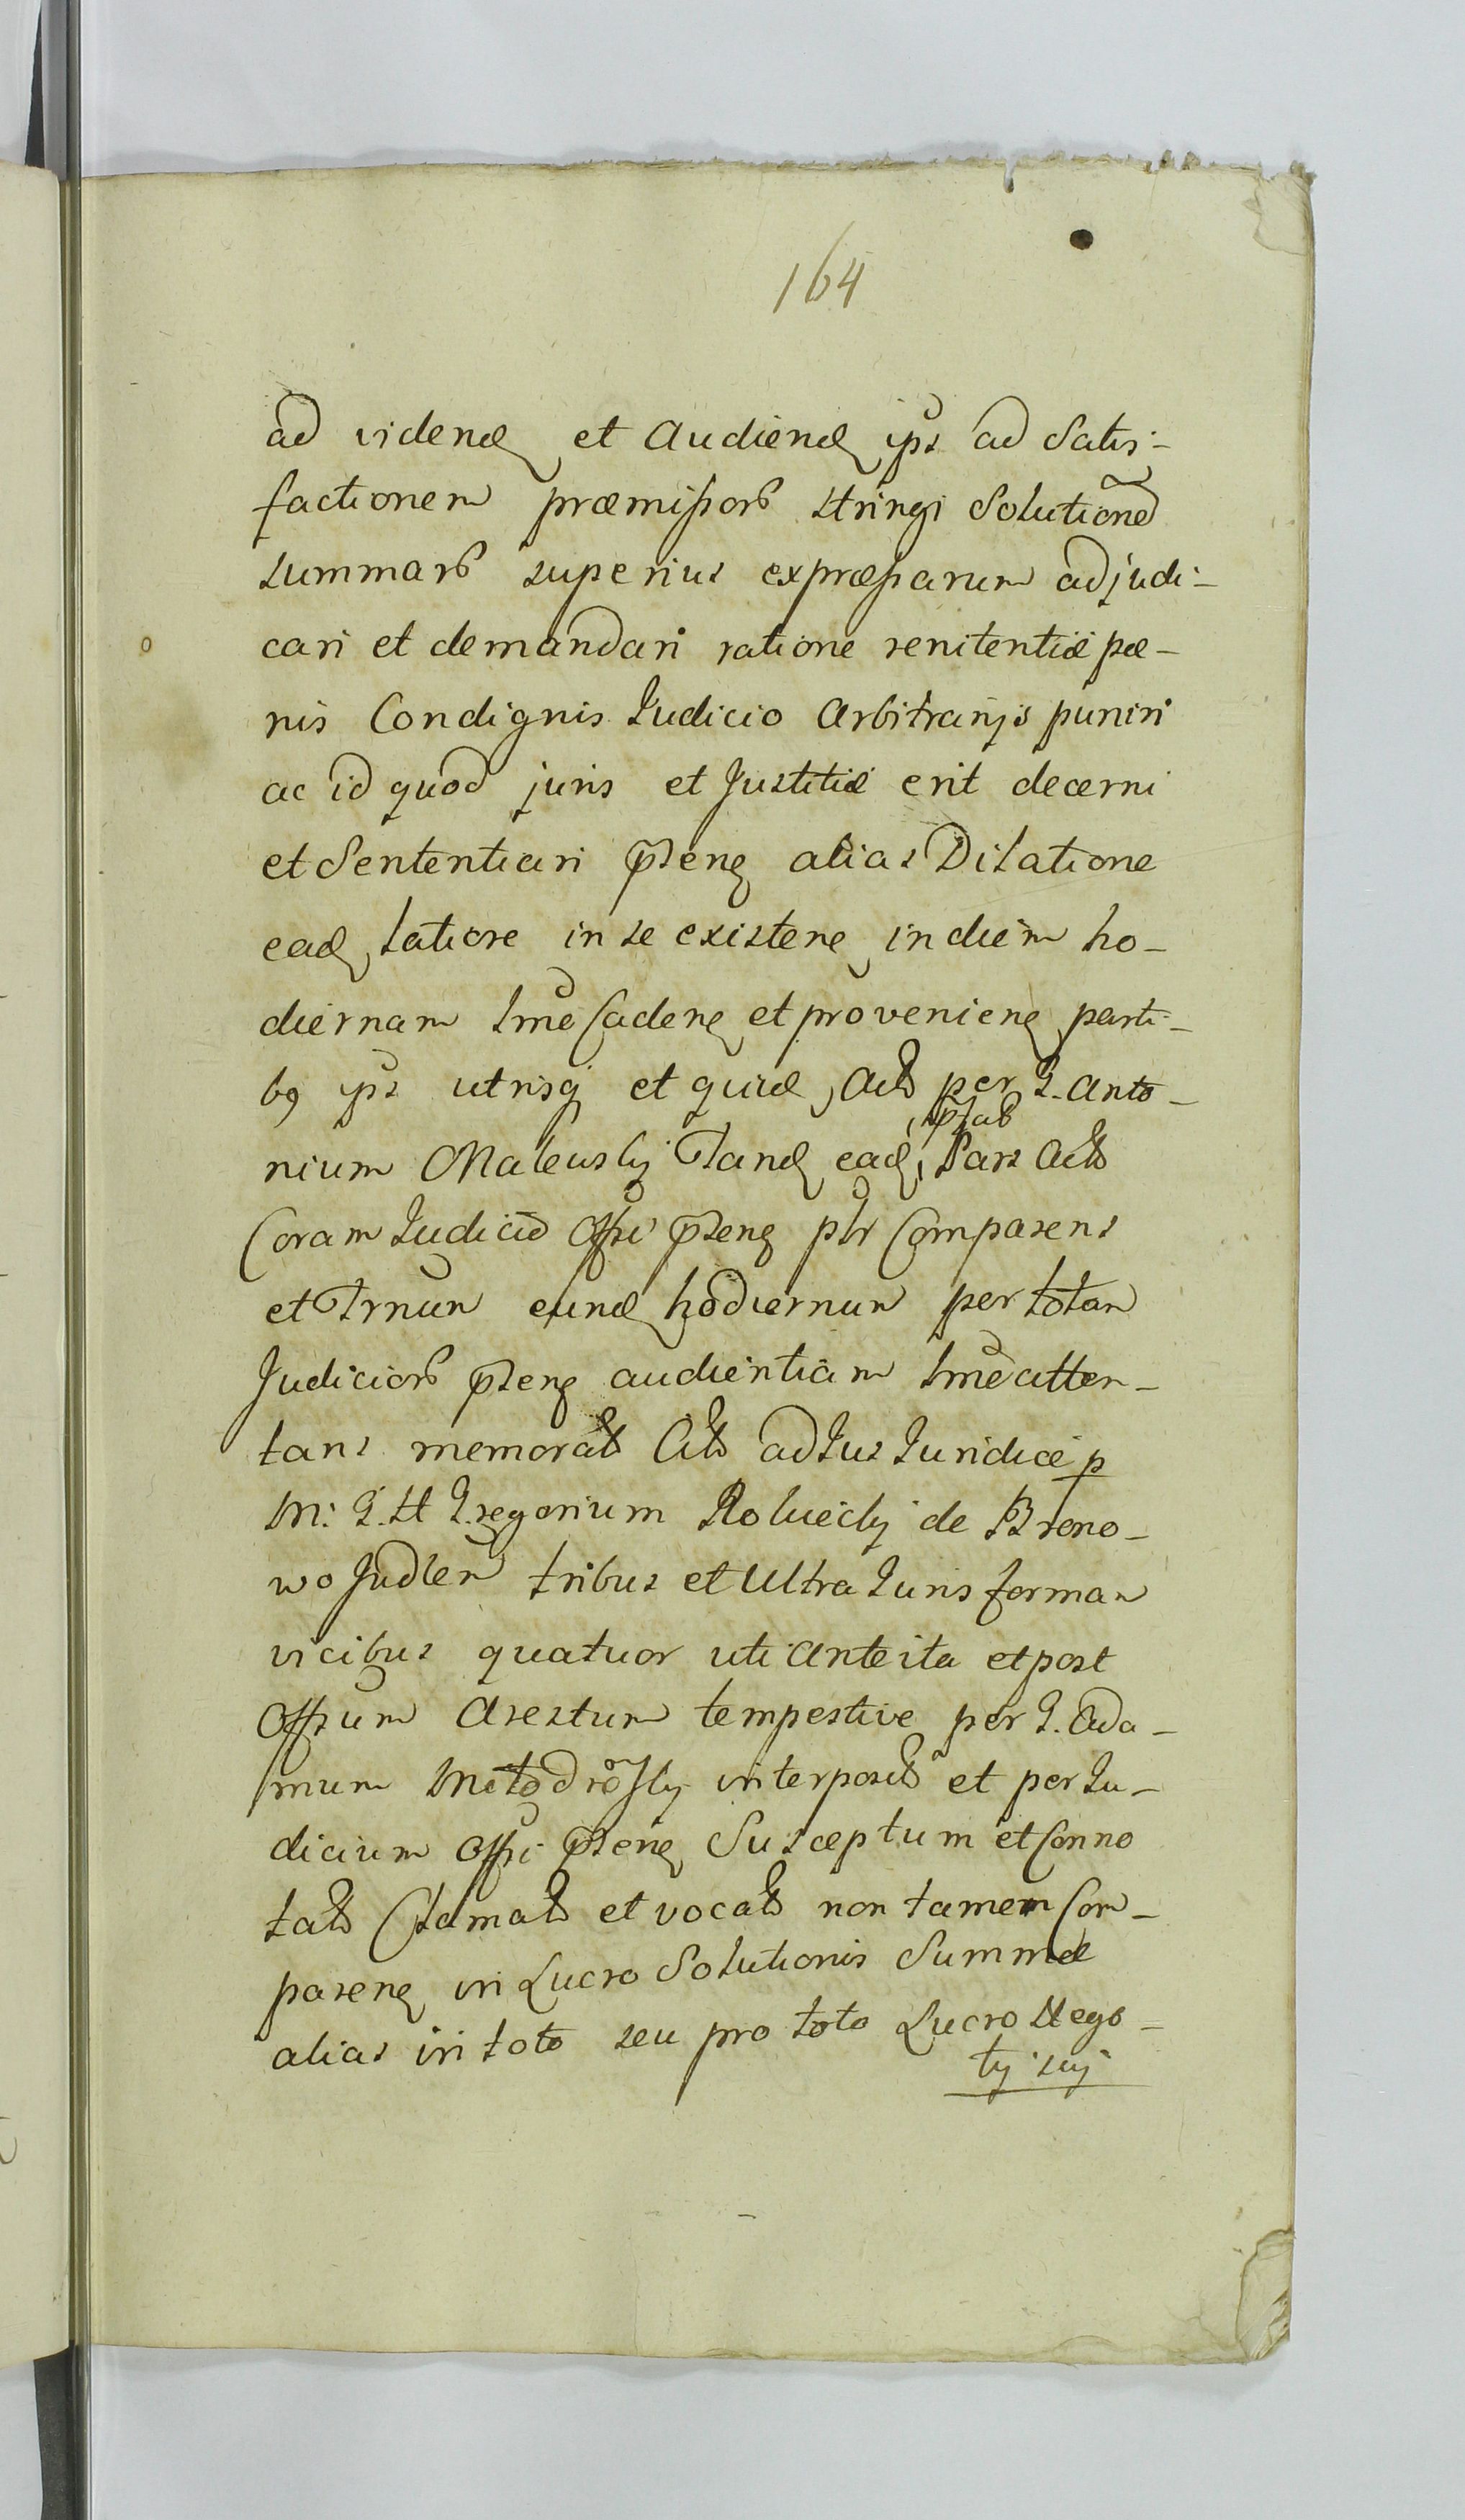 164
ad videnđ et Audienđ ips ad Satis-
factionem præmissorꝝ stringi Solutionē
summarꝝ superius expræssarum adjudi-
cari et demandari ratione renitentiæ pæ-
nis Condignis Judicio Arbitrarijs puniri
ac id quod juris et Justitiæ erit decerni
et Sententiari p̃senꝭ alias Dilatione
eađ latiore in se existenꝭ in diem ho-
diernam lme Cadenꝭ et provenienꝭ parti-
bꝯ ips utrisqꝫ et quidꝭ, Actꝭ per G. Anto-
nium Malewsky Tanđ eađ p̃fatꝭ Pars Actꝭ
Coram Judicio Offi p̃senꝭ plr Comparens
et Trnum eunđ hodiernum per totam
Judiciorꝝ p̃senꝭ audientiam lme atten-
tans memoratꝭ Citꝭ ad Jus Juridicæ p
M: G. H Gregorium Roluecky de Brono-
wo Judlem tribus et Ultra Juris formam
vicibus quatuor uti Ante ita et post
Offsum Arestum tempestive per G. Ada-
mum Modrosky interpositꝭ et per Ju-
dicium Offi p̃senꝭ Susceptum et Conno
tatꝭ Clamatꝭ et vocatꝭ non tamen Com-
parenꝭ in Lucro Solutionis Summæ
alias in toto seu pro toto Lucro Nego-
tij sui